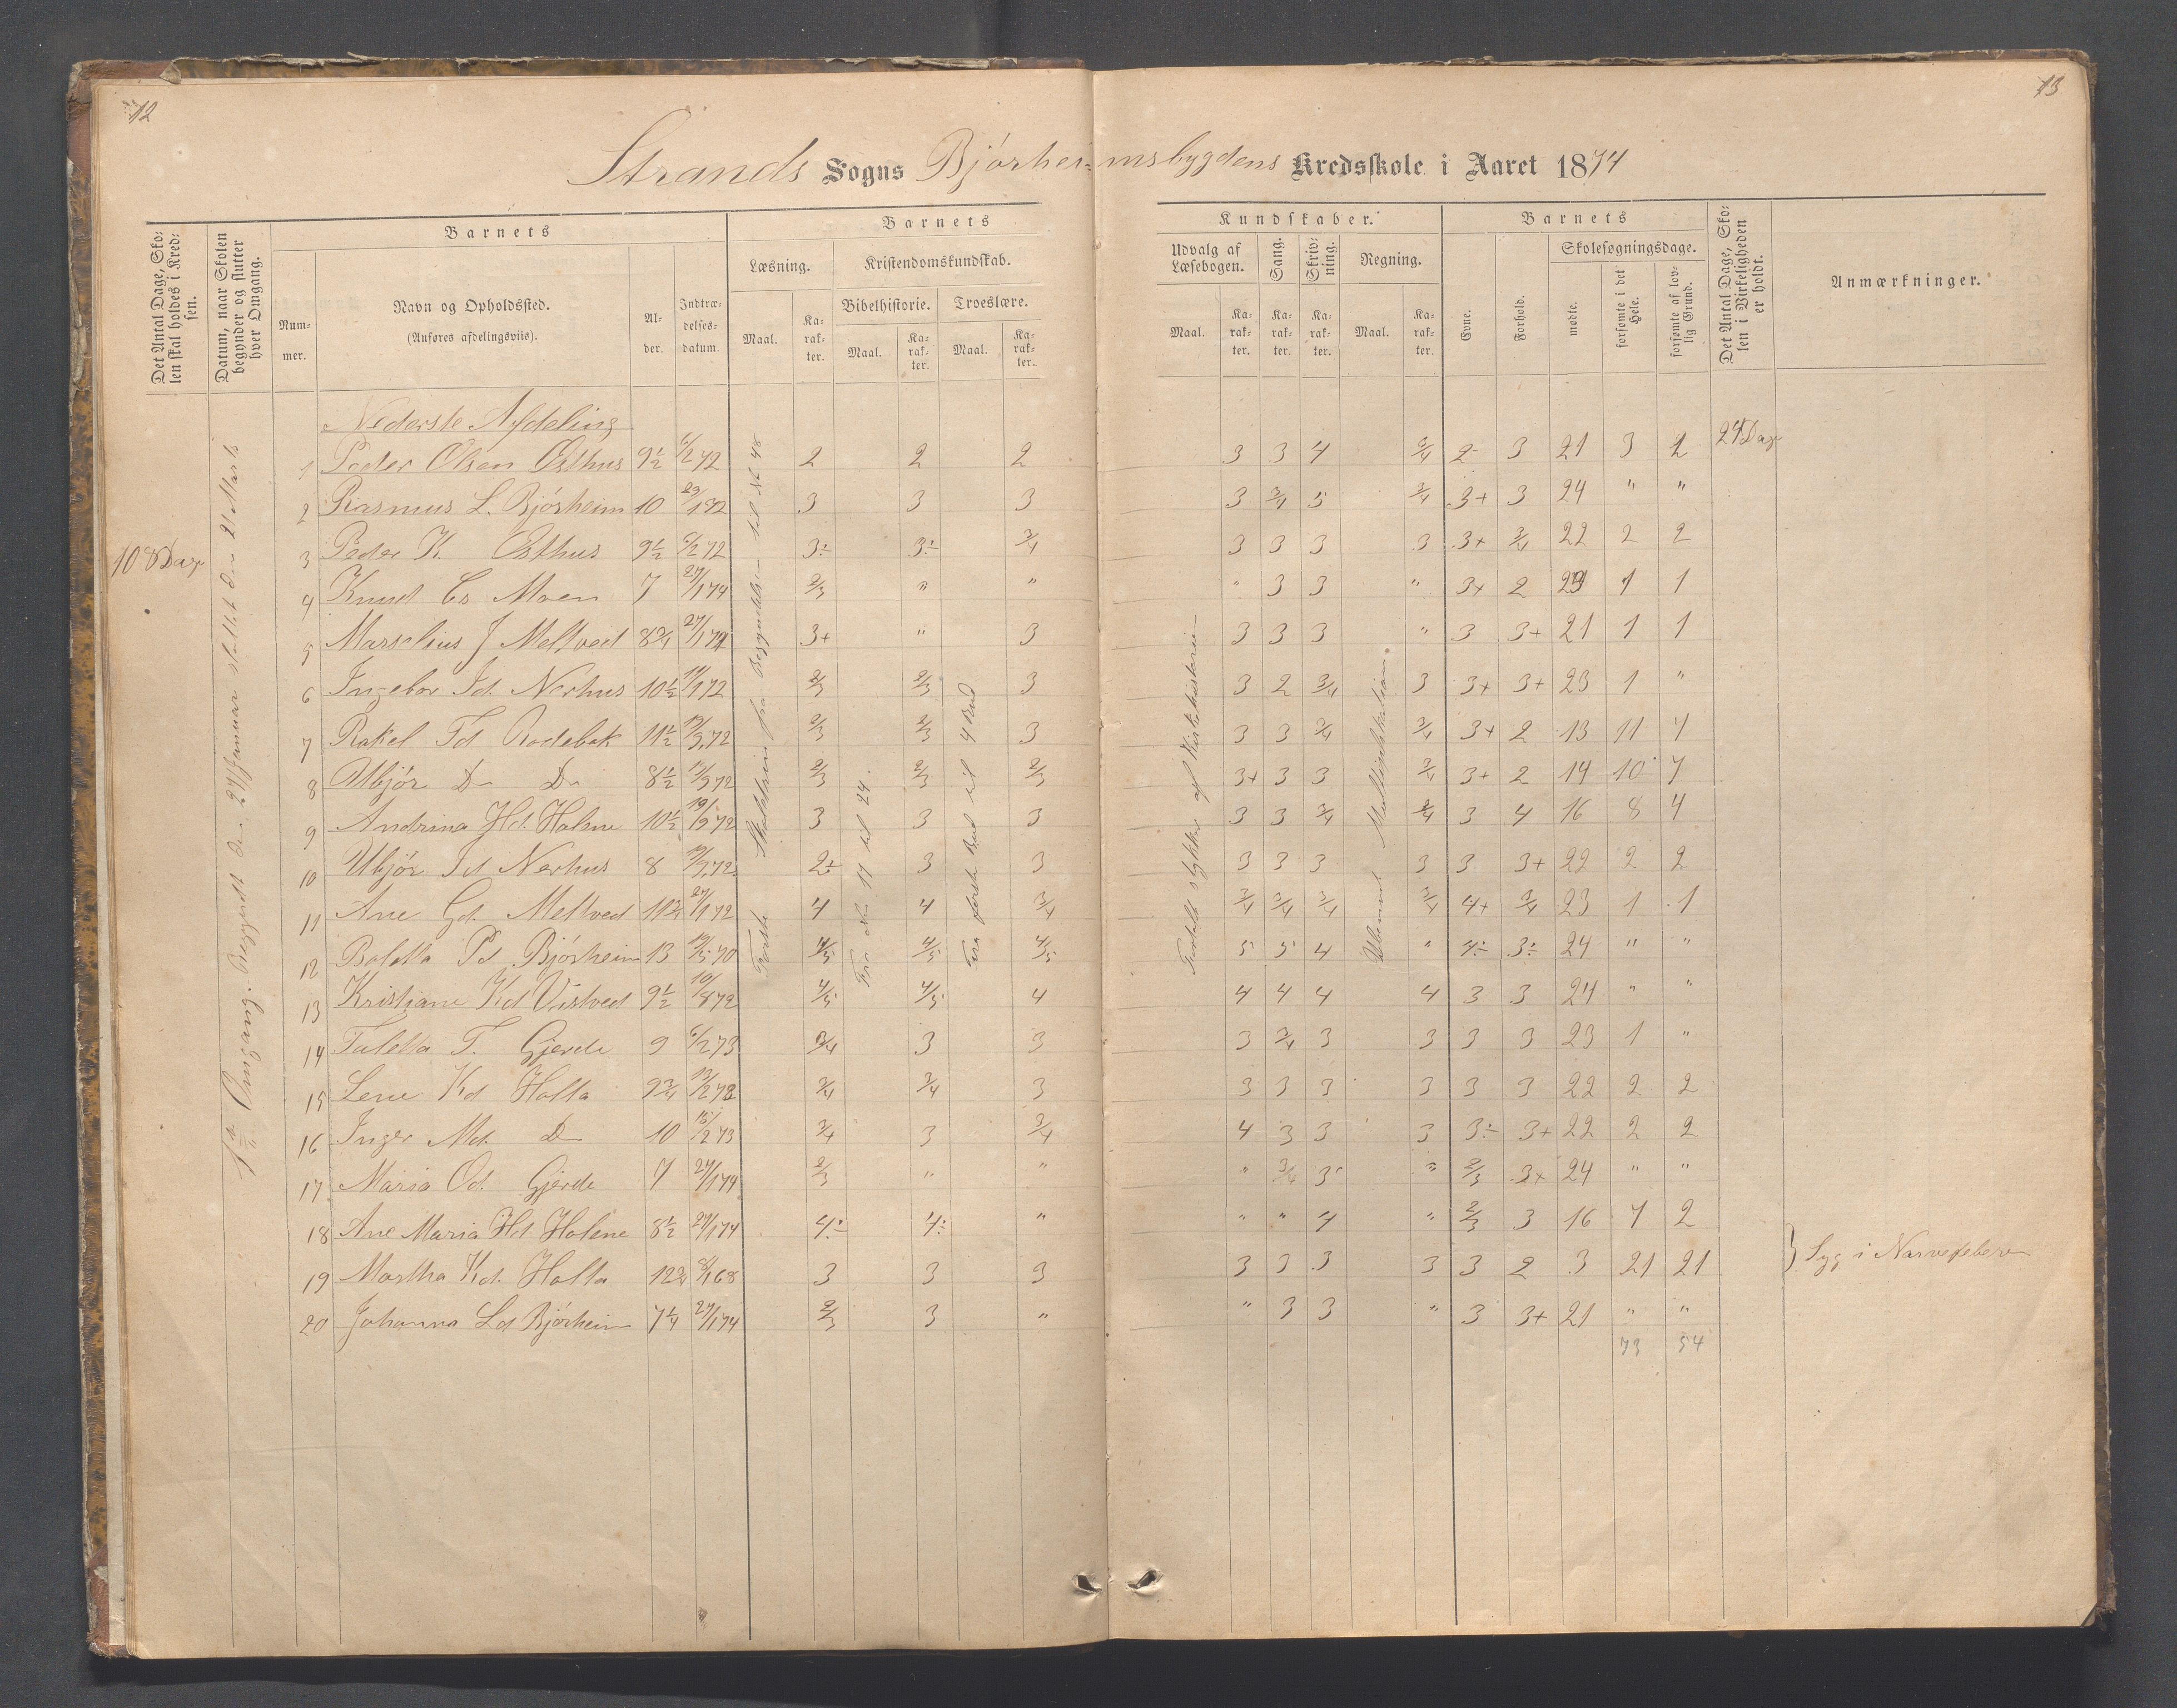 12
13
Strands Sogns Bjørheimsbygdens Kredsskole i Aaret 1874
Det Antal Dage, Skolen skal holdes i Kredsen.
Datum, naar Skolen begynder og slutter hver Omgang.
Barnets
Nummer.
Navn og Opholdssted.
(Anføres afdelingsviis).
Alder.
Indtrædelsesdatum.
Barnets
Læsning.
Kristendomskundskab.
Bibelhistorie.
Troeslære.
Maal.
Karakter.
Maal.
Karakter.
Maal.
Karakter.
Kundskaber.
Udvalg af Læsebogen.
Sang.
Skrivning.
Regning.
Maal.
Karakter.
Karakter.
Karakter.
Maal.
Karakter.
Barnets
Evne.
Forhold.
Skolesøgningsdage.
mødte.
forsømte i det Hele.
forsømte af lovlig Grund.
Det Antal Dage, Skolen i Virkeligheden er holdt.
Anmærkninger.
108 Dage
1ste Omgang. Begyndt den 27 Januar sluttet den 21 Marts
Fra No 17 til 24.
Fra første Bud til 4 Bud
Multiplikation
Nederste Afdeling
1 Peder Olsen Østhus 9½ 6/2 72 2 2 2 3 3 4 3/4 2- 3 21 3 2 24 Dage
2 Rasmus L. Bjørheim 10 29/1 72 3 3 3 3 3/4 5 3/4 3+ 3 24 " "
3 Peder K. Østhus 9½ 6/2 72 3÷ 3÷ 3/4 3 3 3 3 3+ 3/4 22 2 2
4 Knud Moen 7 27/1 74 2/3 " " " 3 3 " 3+ 2 23 1 1
5 Marselius J Meltved 8¾ 27/1 74 3+ " 3 3 3 3 " 3 3+ 21 1 1
6 Ingebor Id. Nerhus 10½ 11/1 72 2/3 2/3 3 3 2 3/4 3 3+ 3+ 23 1 "
7 Rakel Td Rodebak 11½ 19/3 72 2/3 2/3 3 3 3 3/4 3/4 3+ 2 13 11 7
8 Ubjør Do Do 8½ 19/3 72 2/3 2/3 2/3 3+ 3 3 3/4 3+ 2 14 10 7
9 Andrina Hd. Holme 10½ 19/3 72 3 3 3 3 3 3/4 3/4 3 4 16 8 4
10 Ubjør Id Nerhus 8 19/3 72 2÷ 3 3 3 3 3 3 3 3+ 22 2 2
11 Ane Gd. Meltved 11¾ 27/1 72 4 4 3/4 3/4 3/4 3/4 3/4 4+ 3/4 23 1 1
12 Boletta Pd Bjørheim 13 19/5 70 4/5 4/5 4/5 5 5 4 " 4÷ 3÷ 24 " "
13 Kristiane Kd Vistved 9½ 10/8 72 4/5 4/5 4 4 4 4 4 3 3 24 " "
14 Taletta T. Gjerde 9 6/2 73 3/4 3 3 3 3/4 3 3 3 3 23 1 "
15 Lene Kd Holta 9¾ 13/2 73 3/4 3/4 3 3 3 3 3 3 3 22 2 2
16 Inger Md. Do 10 15/2 73 3/4 3 3/4 4 3 3 3 3÷ 3+ 22 2 2
17 Maria Od. Gjerde 7 27/1 74 2/3 " " " 3/4 3 " 2/3 3+ 24 " "
18 Ane Maria Hd Holme 8½ 27/1 74 4÷ 4÷ " " " 4 " 2/3 3 16 7 2
19 Martha Kd. Holta 12¾ 8/1 68 3 3 3 3 3 3 3 3 2 3 21 21 } Syg i Nervefeber
20 Johanna Ld Bjørheim 7¼ 27/1 74 2/3 3 " " 3 3 " 3 3+ 21 " "
73 54